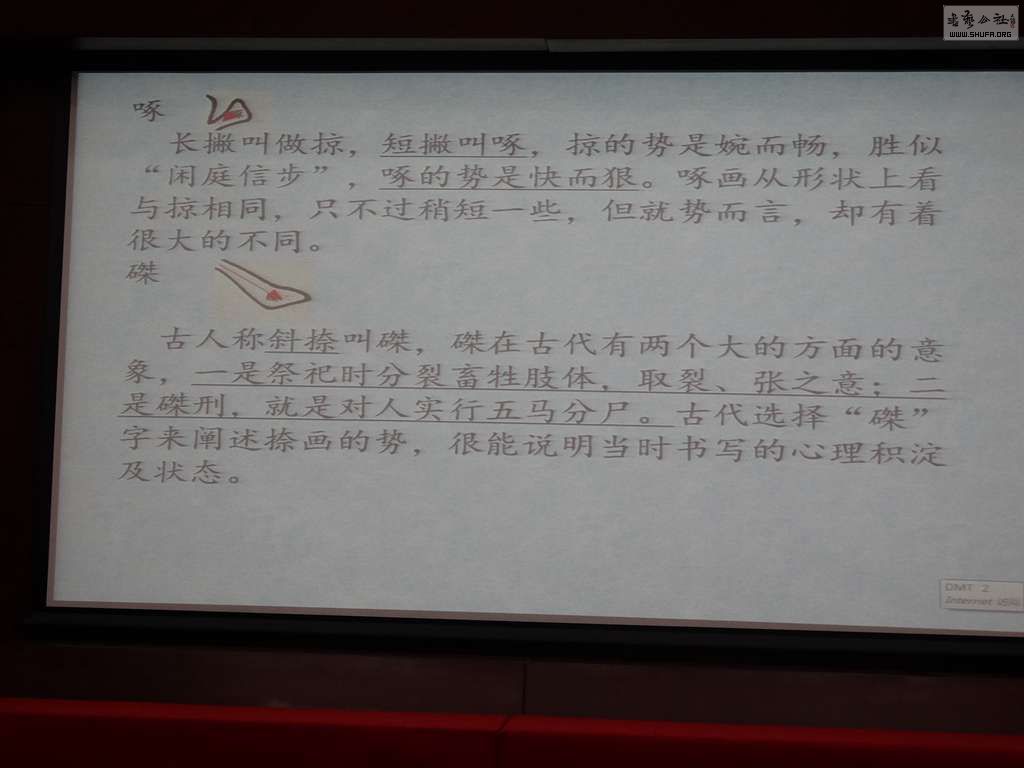 WWW.SHUFA.ORG
啄
长撇叫做掠，短撇叫啄，掠的势是婉而畅，胜似
“闲庭信步”，啄的势是快而狠。啄画从形状上看
与掠相同，只不过稍短一些，但就势而言，却有着
很大的不同。
磔
古人称斜捺叫磔，磔在古代有两个大的方面的意
象，一是祭祀时分裂畜牲肢体，取裂、张之意；二
是磔刑，就是对人实行五马分尸。古代选择“磔”
字来阐述捺画的势，很能说明当时书写的心理积淀
及状态。
DMT 2
Internet 访问